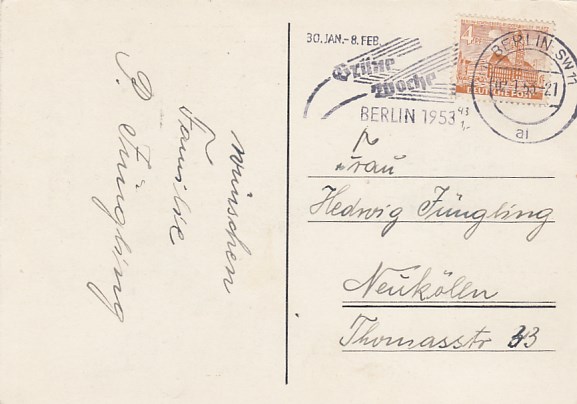 wünschen
Familie
P. Jüngling
30. JAN.-8. FEB.
Grüne
Woche
BERLIN 1953
BERLIN SW 11
ai
4
DEUTSCHE POST
Frau
Hedwig Jüngling
Neukölln
Thomasstr 33